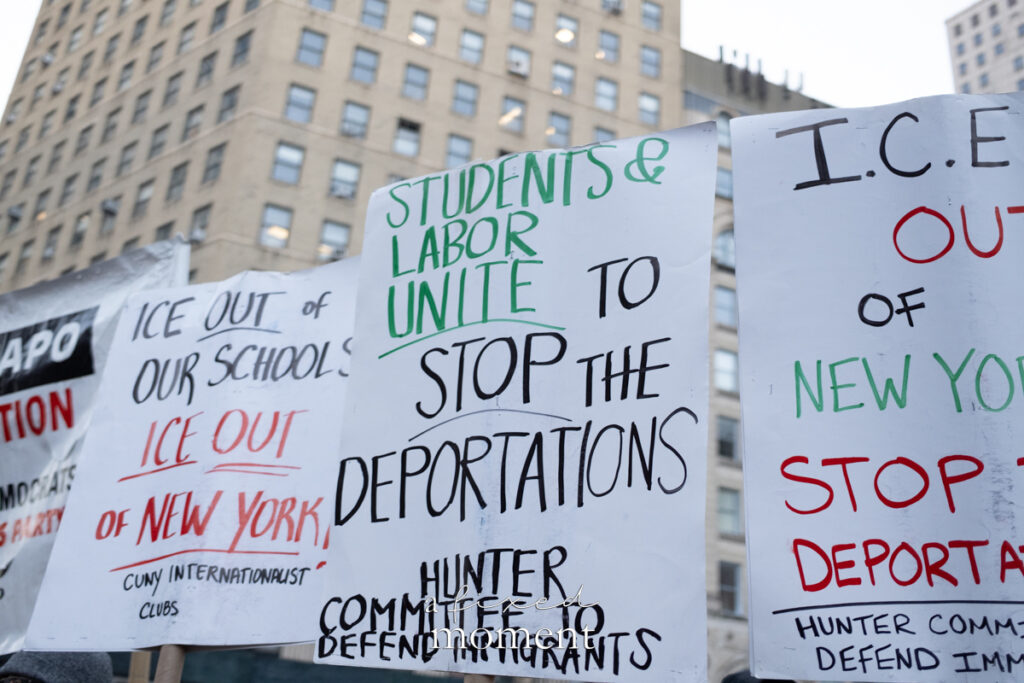 APO
TION
MOCRATS
PARTY
ICE OUT of
OUR SCHOOLS
ICE OUT
OF NEW YORK!
CUNY INTERNATIONALIST
CLUBS
STUDENTS &
LABOR
UNITE TO
STOP THE
DEPORTATIONS
HUNTER
COMMITTEE TO
DEFEND IMMIGRANTS
a fixed
moment
I.C.E
OUT
OF
NEW YO
STOP
DEPORTAT
HUNTER COMMI
DEFEND IMM